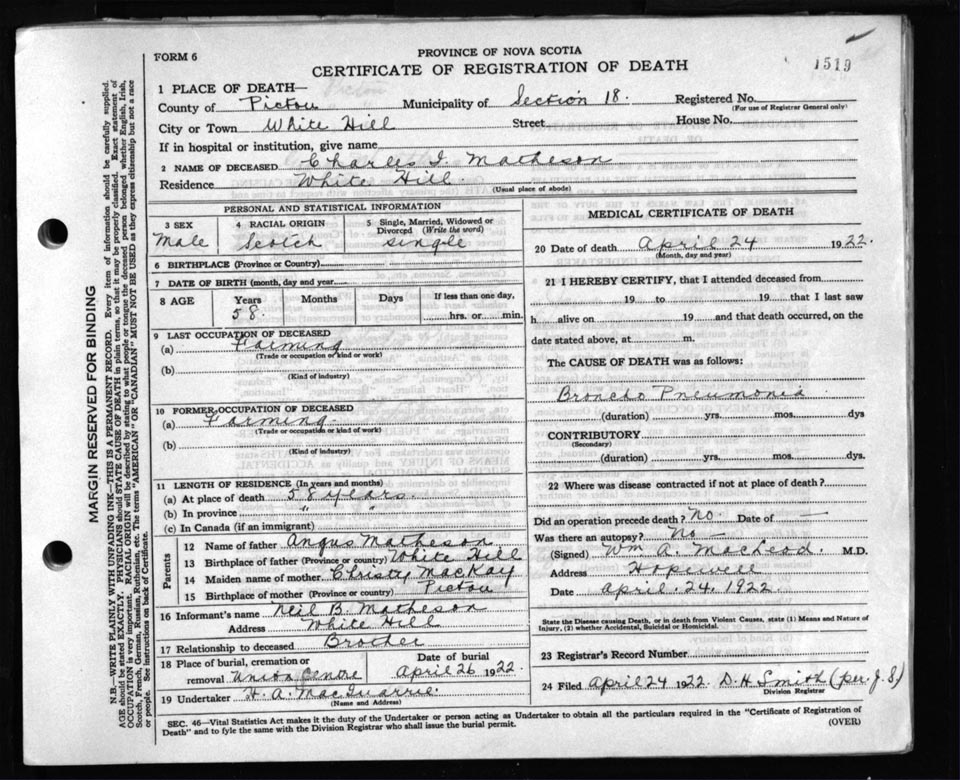 FORM 6
PROVINCE OF NOVA SCOTIA
CERTIFICATE OF REGISTRATION OF DEATH
1519
1 PLACE OF DEATH—
County of Pictou Municipality of Section 18. Registered No.
(For use of Registrar General only)
City or Town White Hill Street House No.
If in hospital or institution, give name
2 NAME OF DECEASED Charles I. Matheson
Residence White Hill.
(Usual place of abode)
PERSONAL AND STATISTICAL INFORMATION
3 SEX 4 RACIAL ORIGIN 5 Single, Married, Widowed or Divorced (Write the word)
Male Scotch single
6 BIRTHPLACE (Province or Country)
7 DATE OF BIRTH (month, day and year)
8 AGE Years Months Days If less than one day,
58. hrs. or min.
9 LAST OCCUPATION OF DECEASED
(a) Farming
(Trade or occupation or kind or work)
(b)
(Kind of industry)
10 FORMER OCCUPATION OF DECEASED
(a) Farming
(Trade or occupation or kind of work)
(b)
(Kind of industry)
11 LENGTH OF RESIDENCE (In years and months)
(a) At place of death 58 years.
(b) In province " "
(c) In Canada (if an immigrant)
Parents
12 Name of father Angus Matheson
13 Birthplace of father (Province or country) White Hill
14 Maiden name of mother Christy MacKay
15 Birthplace of mother (Province or country) Pictou
16 Informant's name Neil B. Matheson
Address White Hill
17 Relationship to deceased Brother
18 Place of burial, cremation or Date of burial
removal Union Centre April 26 1922.
19 Undertaker H. A. MacQuarrie.
(Name and Address)
MEDICAL CERTIFICATE OF DEATH
20 Date of death April 24 1922.
(Month, day and year)
21 I HEREBY CERTIFY, that I attended deceased from
19 to 19 that I last saw
h alive on 19 and that death occurred, on the
date stated above, at m.
The CAUSE OF DEATH was as follows:
Broncho Pneumonia
(duration) yrs. mos. dys
CONTRIBUTORY
(Secondary)
(duration) yrs. mos. dys.
22 Where was disease contracted if not at place of death?
Did an operation precede death? No. Date of —
Was there an autopsy? No —
(Signed) Wm A. MacLeod. M.D.
Address Hopewell
Date April. 24, 1922.
State the Disease causing Death, or in death from Violent Causes, state (1) Means and Nature of
Injury, (2) whether Accidental, Suicidal or Homicidal.
23 Registrar's Record Number
24 Filed April 24 1922. D. H. Smith (per. J. S)
Division Registrar
SEC. 46—Vital Statistics Act makes it the duty of the Undertaker or person acting as Undertaker to obtain all the particulars required in the "Certificate of Registration of
Death" and to fyle the same with the Division Registrar who shall issue the burial permit.
(OVER)
MARGIN RESERVED FOR BINDING
N.B.—WRITE PLAINLY WITH UNFADING INK—THIS IS A PERMANENT RECORD. Every item of information should be carefully supplied.
AGE should be stated EXACTLY. PHYSICIANS should STATE CAUSE OF DEATH in plain terms, so that it may be properly classified. Exact statement of
OCCUPATION is very important. RACIAL ORIGIN will be described by stating to what people or tongue the deceased person belonged whether English, Irish,
Scotch, French, German, Russian, Ruthenian, etc. The terms "AMERICAN" OR "CANADIAN" MUST NOT BE USED as they express citizenship but not a race
or people. See instructions on back of Certificate.